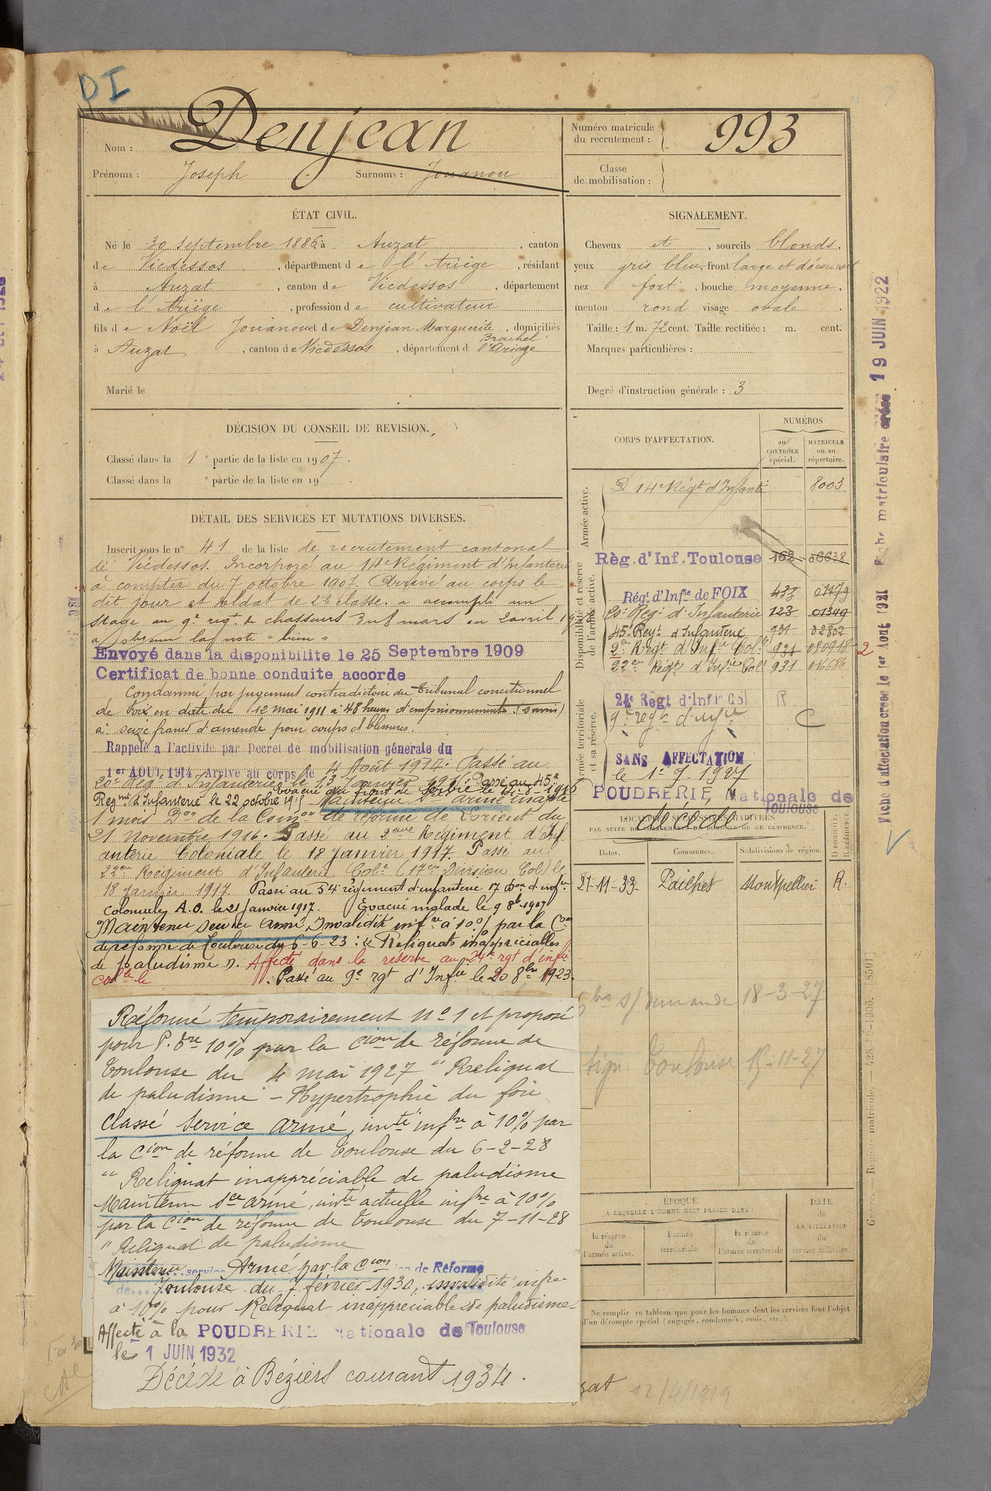 DI
Nom : Denjean
Prénoms : Joseph Surnoms : Jouanou
Numéro matricule du recrutement : 993
Classe de mobilisation :
ÉTAT CIVIL.
Né le 20 septembre 1886 à Auzat, canton
de Vicdessos, département de l'Ariège, résidant
à Auzat, canton de Vicdessos, département
de l'Ariège, profession de cultivateur
fils de Noël Jouanou et de Denjean Marguerite, domiciliés
à Auzat, canton de Vicdessos, département d l'Ariège
Marié le
SIGNALEMENT.
Cheveux et, sourcils blonds.
yeux gris bleu, front large et découvert
nez fort, bouche moyenne.
menton rond visage ovale.
Taille : 1 m. 72 cent. Taille rectifiée : m. cent.
Marques particulières :
Degré d'instruction générale : 3
DÉCISION DU CONSEIL DE REVISION.
Classé dans la 1e partie de la liste en 1907.
Classé dans la e partie de la liste en 19
DÉTAIL DES SERVICES ET MUTATIONS DIVERSES.
Inscrit sous le n° 41 de la liste de recrutement cantonal
de Vicdessos. Incorporé au 14e Régiment d'Infanterie
à compter du 7 octobre 1907. Arrivé au corps le
dit jour et soldat de 2e classe. a accompli un
stage au 9e régt de chasseurs
a obtenu la note "bien"
Envoyé dans la disponibilite le 25 Septembre 1909
Certificat de bonne conduite accorde
Condamné par jugement contradictoire du tribunal correctionnel
de Foix en date du 12 mai 1911 à 48 heures d'emprisonnement (sursis)
à seize francs d'amende pour coups et blessures.
Rappelé a l'activite par Decret de mobilisation générale du
1er AOUT 1914. Arrivé au corps le 4 Août 1914. Passé au
20e Rég d'Infanterie le 13 janvier Passé au 45e
Regmt d'Infanterie le 22 octobre
1 mois Don de la Comon de réforme de Lorient du
21 Novembre 1916. Passé au 2eme Régiment d'Inf
anterie Coloniale le 18 Janvier 1917. Passé au
22e Régiment d'Infanterie Cole (17e Division Col) le
18 janvier 1917. Passé au 54e régiment d'infanterie 17 don d'infie
Coloniale A.O. le 21 janvier 1917. Evacué malade le 9 8bre 1917
Maintenu service armé Invalidité infre à 10% par la Con
de réforme de Toulouse du 6-6-23 : "Reliquats inappréciables
de paludisme". Affecté dans la réserve au 24e rgt d'infie
Passé au 9e rgt d'Infie le 20 8bre 1923.
Réformé temporairement n°1 et proposé
pour P. tre 10% par la Cion de réforme de
Toulouse du 4 mai 1927 "Reliquat
de paludisme - Hypertrophie du foie
Classé service armé, invté infre à 10% par
la Cion de réforme de Toulouse du 6-2-28
"Reliquat inappréciable de paludisme
Maintenu sce armé, invté actuelle infre à 10%
par la Cion de réforme de Toulouse du 7-11-28
"Reliquat de paludisme
Maintenu service Armé par la Cion de Réforme
de Toulouse du 7 février 1930, invalidité infre
à 10% pour Reliquat inappréciable de paludisme
Affecté à la POUDRERIE Nationale de Toulouse
le 1 JUIN 1932
Décédé à Béziers courant 1934.
CORPS D'AFFECTATION.
NUMÉROS
au CONTRÔLE spécial.
MATRICULE ou au répertoire.
Armée active.
Disponibilité et réserve de l'armée active.
Armée territoriale et sa réserve.
14e Régt d'Infanti 8003
Règ. d'Inf. Toulouse 163
Rég. d'Infie de FOIX 437
20e Régt d'Infanterie 123 01349
45e Regt d'Infanterie 931 32802
2e Régt d'Infie Cole 931
22eme Régt d'Infie Cole 931
24e Regt d'Infie Col R
9e régt d'infie C
SANS AFFECTATION
le 1er 7. 1927
POUDRERIE Nationale de
Toulouse
décédé
LOCALITÉS SUCCESSIVES HABITÉES
PAR SUITE DE CHANGEMENT DE DOMICILE OU DE RÉSIDENCE.
Dates. Communes. Subdivisions de région. D. DOMICILE. R. RÉSIDENCE.
21-11-33 Pailhès Montpellier R.
s/ demande 18-3-27
Toulouse 15-11-27
ÉPOQUE
A LAQUELLE L'HOMME DOIT PASSER DANS
la réserve de l'armée active.
l'armée territoriale.
la réserve de l'armée territoriale
DATE de LA LIBÉRATION du service militaire.
Ne remplir ce tableau que pour les hommes dont les services font l'objet
d'un décompte spécial (engagés, condamnés, omis, etc.).
12/4/1919
Fiche d'affectation créée le 1er Aout 1921
Fiche matriculaire créée 19 JUIN 1922